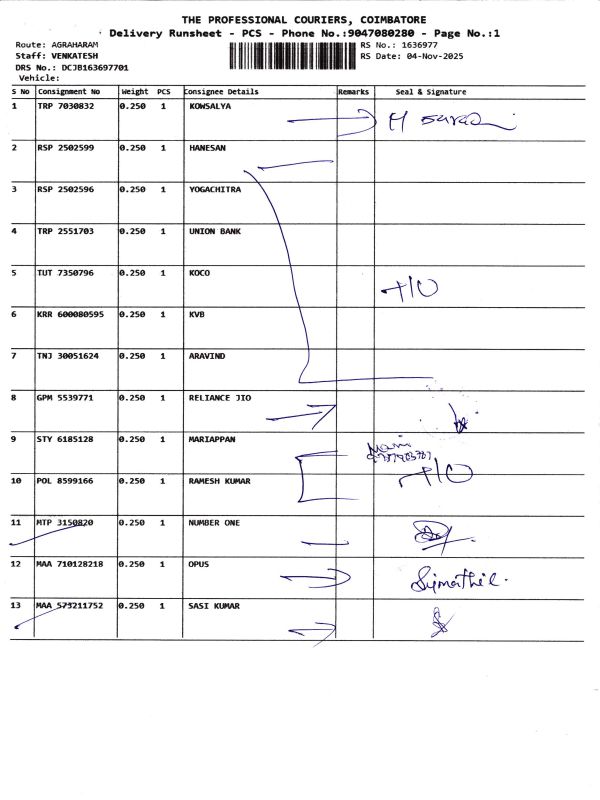 THE PROFESSIONAL COURIERS, COIMBATORE
Delivery Runsheet - PCS - Phone No.:9047080280 - Page No.:1
Route: AGRAHARAM RS No.: 1636977
Staff: VENKATESH RS Date: 04-Nov-2025
DRS No.: DCJB163697701
Vehicle:
S No Consignment No Weight PCS Consignee Details Remarks Seal & Signature
1 TRP 7030832 0.250 1 KOWSALYA
2 RSP 2502599 0.250 1 HANESAN
3 RSP 2502596 0.250 1 YOGACHITRA
4 TRP 2551703 0.250 1 UNION BANK
5 TUT 7350796 0.250 1 KOCO
6 KRR 600080595 0.250 1 KVB
7 TNJ 30051624 0.250 1 ARAVIND
8 GPM 5539771 0.250 1 RELIANCE JIO
9 STY 6185128 0.250 1 MARIAPPAN
10 POL 8599166 0.250 1 RAMESH KUMAR
11 MTP 3150820 0.250 1 NUMBER ONE
12 MAA 710128218 0.250 1 OPUS
13 MAA 573211752 0.250 1 SASI KUMAR